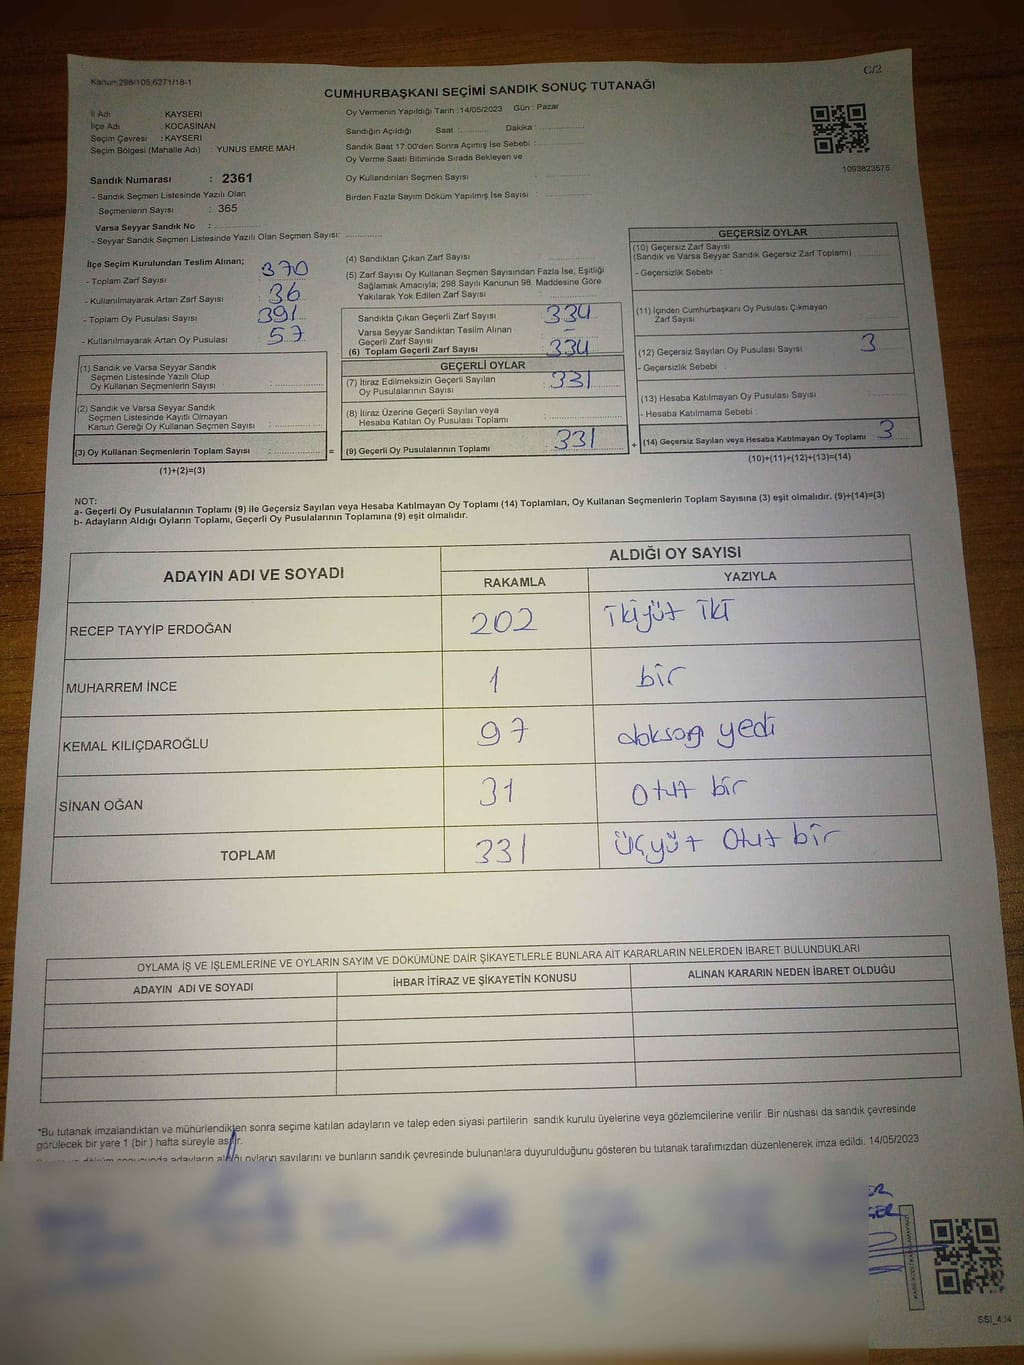 Kanun 298/105,6271/18-1
C/2
CUMHURBAŞKANI SEÇİMİ SANDIK SONUÇ TUTANAĞI
İl Adı : KAYSERİ
İlçe Adı : KOCASİNAN
Seçim Çevresi : KAYSERİ
Seçim Bölgesi (Mahalle Adı) : YUNUS EMRE MAH.
Oy Vermenin Yapıldığı Tarih :14/05/2023 Gün : Pazar
Sandığın Açıldığı Saat :........... Dakika :...............
Sandık Saat 17:00'den Sonra Açımış İse Sebebi :
Oy Verme Saati Bitiminde Sırada Bekleyen ve
Oy Kullandırılan Seçmen Sayısı :
Birden Fazla Sayım Döküm Yapılmış İse Sayısı :
1093823575
Sandık Numarası : 2361
- Sandık Seçmen Listesinde Yazılı Olan
Seçmenlerin Sayısı : 365
Varsa Seyyar Sandık No :
- Seyyar Sandık Seçmen Listesinde Yazılı Olan Seçmen Sayısı:
İlçe Seçim Kurulundan Teslim Alınan;
- Toplam Zarf Sayısı : 370
- Kullanılmayarak Artan Zarf Sayısı : 36
- Toplam Oy Pusulası Sayısı : 391
- Kullanılmayarak Artan Oy Pusulası : 57
(1) Sandık ve Varsa Seyyar Sandık
Seçmen Listesinde Yazılı Olup
Oy Kullanan Seçmenlerin Sayısı :
(2) Sandık ve Varsa Seyyar Sandık
Seçmen Listesinde Kayıtlı Olmayan
Kanun Gereği Oy Kullanan Seçmen Sayısı :
(3) Oy Kullanan Seçmenlerin Toplam Sayısı :
(1)+(2)=(3)
=
(4) Sandıktan Çıkan Zarf Sayısı :
(5) Zarf Sayısı Oy Kullanan Seçmen Sayısından Fazla İse, Eşitliği
Sağlamak Amacıyla; 298 Sayılı Kanunun 98. Maddesine Göre
Yakılarak Yok Edilen Zarf Sayısı :
Sandıkta Çıkan Geçerli Zarf Sayısı : 334
Varsa Seyyar Sandıktan Teslim Alınan
Geçerli Zarf Sayısı : -
(6) Toplam Geçerli Zarf Sayısı : 334
GEÇERLİ OYLAR
(7) İtiraz Edilmeksizin Geçerli Sayılan
Oy Pusulalarının Sayısı : 331
(8) İtiraz Üzerine Geçerli Sayılan veya
Hesaba Katılan Oy Pusulası Toplamı :
(9) Geçerli Oy Pusulalarının Toplamı : 331
+
GEÇERSİZ OYLAR
(10) Geçersiz Zarf Sayısı
(Sandık ve Varsa Seyyar Sandık Geçersiz Zarf Toplamı) :
- Geçersizlik Sebebi :
(11) İçinden Cumhurbaşkanı Oy Pusulası Çıkmayan
Zarf Sayısı :
(12) Geçersiz Sayılan Oy Pusulası Sayısı : 3
- Geçersizlik Sebebi :
(13) Hesaba Katılmayan Oy Pusulası Sayısı :
- Hesaba Katılmama Sebebi :
(14) Geçersiz Sayılan veya Hesaba Katılmayan Oy Toplamı : 3
(10)+(11)+(12)+(13)=(14)
NOT:
a- Geçerli Oy Pusulalarının Toplamı (9) ile Geçersiz Sayılan veya Hesaba Katılmayan Oy Toplamı (14) Toplamları, Oy Kullanan Seçmenlerin Toplam Sayısına (3) eşit olmalıdır. (9)+(14)=(3)
b- Adayların Aldığı Oyların Toplamı, Geçerli Oy Pusulalarının Toplamına (9) eşit olmalıdır.
ADAYIN ADI VE SOYADI
ALDIĞI OY SAYISI
RAKAMLA YAZIYLA
RECEP TAYYİP ERDOĞAN 202 ikiyüz iki
MUHARREM İNCE 1 bir
KEMAL KILIÇDAROĞLU 97 doksan yedi
SİNAN OĞAN 31 Otuz bir
TOPLAM 331 üçyüz Otuz bir
OYLAMA İŞ VE İŞLEMLERİNE VE OYLARIN SAYIM VE DÖKÜMÜNE DAİR ŞİKAYETLERLE BUNLARA AİT KARARLARIN NELERDEN İBARET BULUNDUKLARI
ADAYIN ADI VE SOYADI İHBAR İTİRAZ VE ŞİKAYETİN KONUSU ALINAN KARARIN NEDEN İBARET OLDUĞU
*Bu tutanak imzalandıktan ve mühürlendikten sonra seçime katılan adayların ve talep eden siyasi partilerin sandık kurulu üyelerine veya gözlemcilerine verilir .Bir nüshası da sandık çevresinde
görülecek bir yere 1 (bir ) hafta süreyle asılır.
sonucunda adayların aldığı oyların sayılarını ve bunların sandık çevresinde bulunanlara duyurulduğunu gösteren bu tutanak tarafımızdan düzenlenerek imza edildi. 14/05/2023
SSI_4.14